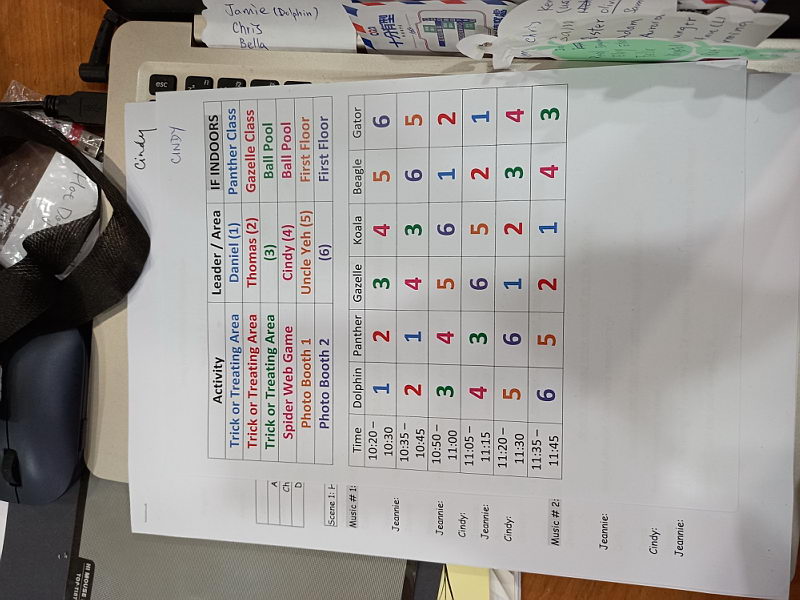 Jamie (Dolphin)
Chris
Bella
esc
Cindy
CINDY
Activity Leader / Area IF INDOORS
Trick or Treating Area Daniel (1) Panther Class
Trick or Treating Area Thomas (2) Gazelle Class
Trick or Treating Area (3) Ball Pool
Spider Web Game Cindy (4) Ball Pool
Photo Booth 1 Uncle Yeh (5) First Floor
Photo Booth 2 (6) First Floor
Time Dolphin Panther Gazelle Koala Beagle Gator
10:20 – 10:30 1 2 3 4 5 6
10:35 – 10:45 2 1 4 3 6 5
10:50 – 11:00 3 4 5 6 1 2
11:05 – 11:15 4 3 6 5 2 1
11:20 – 11:30 5 6 1 2 3 4
11:35 – 11:45 6 5 2 1 4 3
A
Ch
D
Scene 1:
Music # 1:
Jeannie:
Jeannie:
Cindy:
Jeannie:
Cindy:
Music # 2:
Jeannie:
Cindy:
Jeannie: